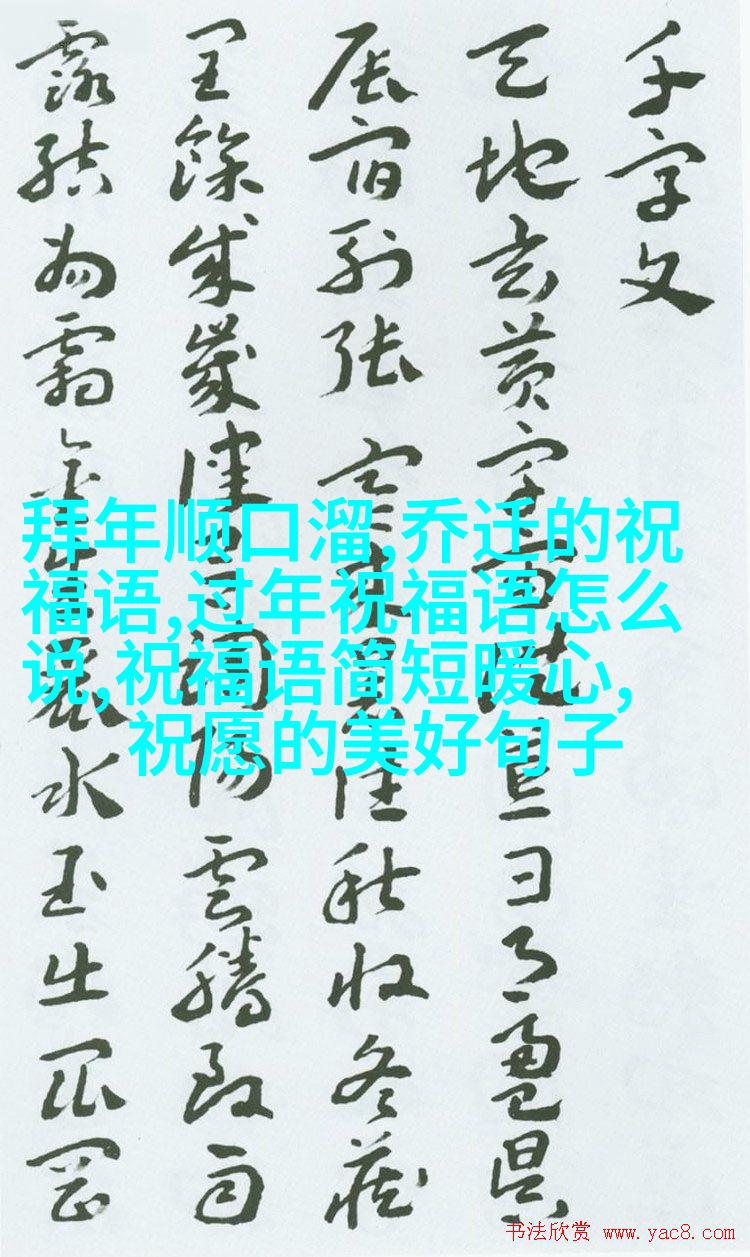 千字文
天地玄黄宇宙洪荒日月盈昃
辰宿列张寒来暑往秋收冬藏
閏餘成歲律吕調陽雲騰致雨
露結為霜金生麗水玉出崑岡
拜年顺口溜,乔迁的祝
福语,过年祝福语怎么
说,祝福语简短暖心,
祝愿的美好句子
书法欣赏 www.yac8.com